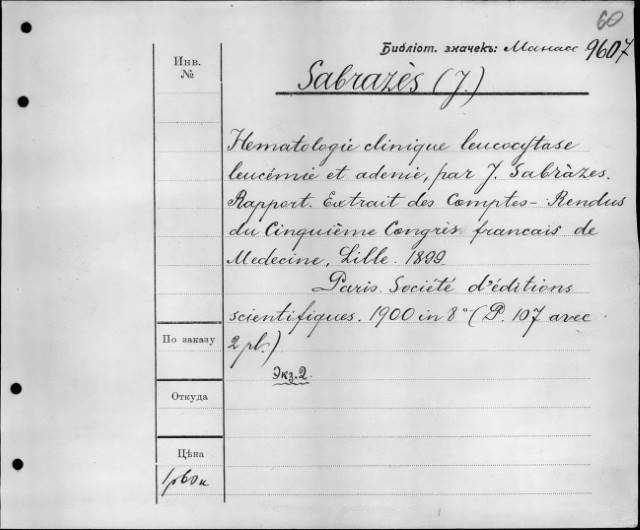 60
Библіот. значекъ: Манасс 9607
Инв.
№
Sabrazès (J.)
Hematologie clinique leucocytase
leucémie et adenie, par J. Sabràzes.
Rapport. Extrait des Comptes-Rendus
du Cinquième Congrès francais de
Medecine, Lille. 1899
Paris. Société d'éditions
scientifiques. 1900 in 8° (P. 107 avec
По заказу
2 pl.)
Экз. 2.
Откуда
Цѣна
1 р 60 к